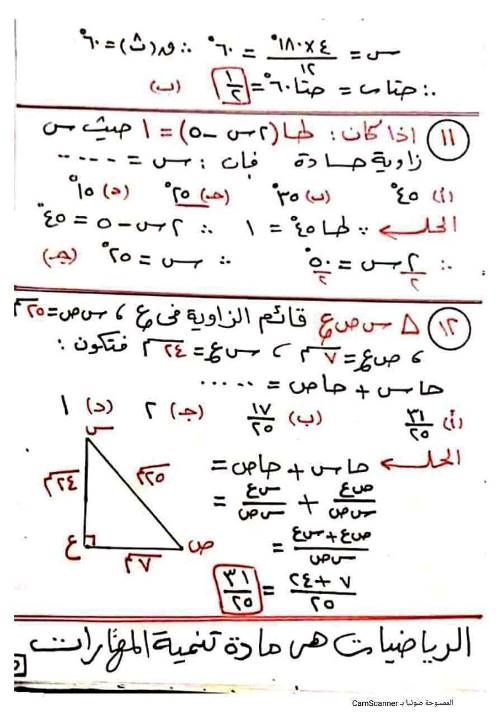 س = ١٨٠×٤ / ١٢ = ٦٠° ∴ ق(ث) = ٦٠°
∴ حتا ث = حتا ٦٠° = ١/٢ (ب)
١١ إذا كان : طا(٢س - ٥) = ١ حيث س
زاوية حادة فإن : س = .....
(أ) ٤٥° (ب) ٣٥° (جـ) ٢٥° (د) ١٥°
الحل ∵ طا ٤٥° = ١ ∴ ٢س - ٥ = ٤٥°
∴ ٢س / ٢ = ٥٠° / ٢ ∴ س = ٢٥° (جـ)
١٢ △ س ص ع قائم الزاوية فى ع ، س ص = ٢٥ سم
، ص ع = ٧ سم ، س ع = ٢٤ سم فتكون :
حا س + حا ص = .....
(أ) ٣١/٢٥ (ب) ١٧/٢٥ (جـ) ٢ (د) ١
الحل حا س + حا ص =
ص ع / س ص + س ع / س ص =
ص ع + س ع / س ص =
٧ + ٢٤ / ٢٥ = ٣١/٢٥
س
٢٤ سم
٢٥ سم
ع
ص
٧ سم
الرياضيات هى مادة تنمية المهارات
الممسوحة ضوئيا بـ CamScanner